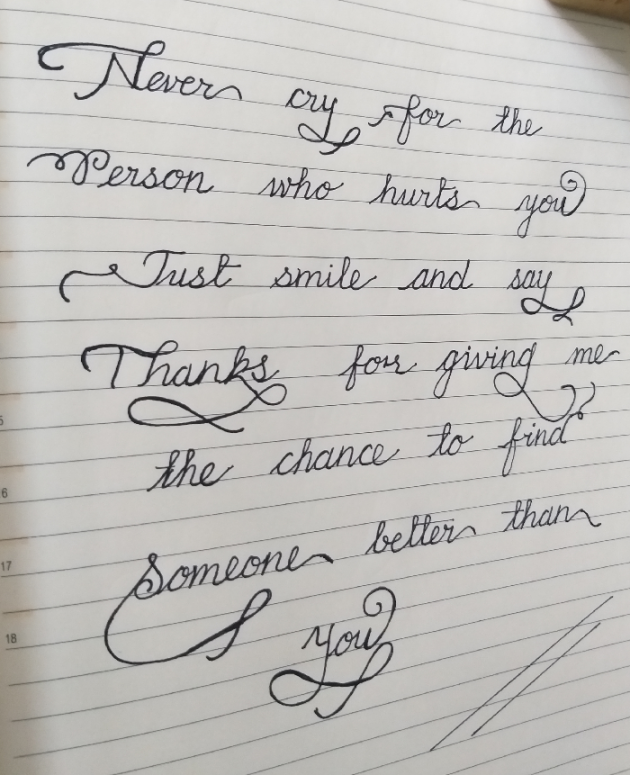 Never cry for the
Person who hurts you
Just smile and say
Thanks for giving me
the chance to find
Someone better than
you
5
6
17
18